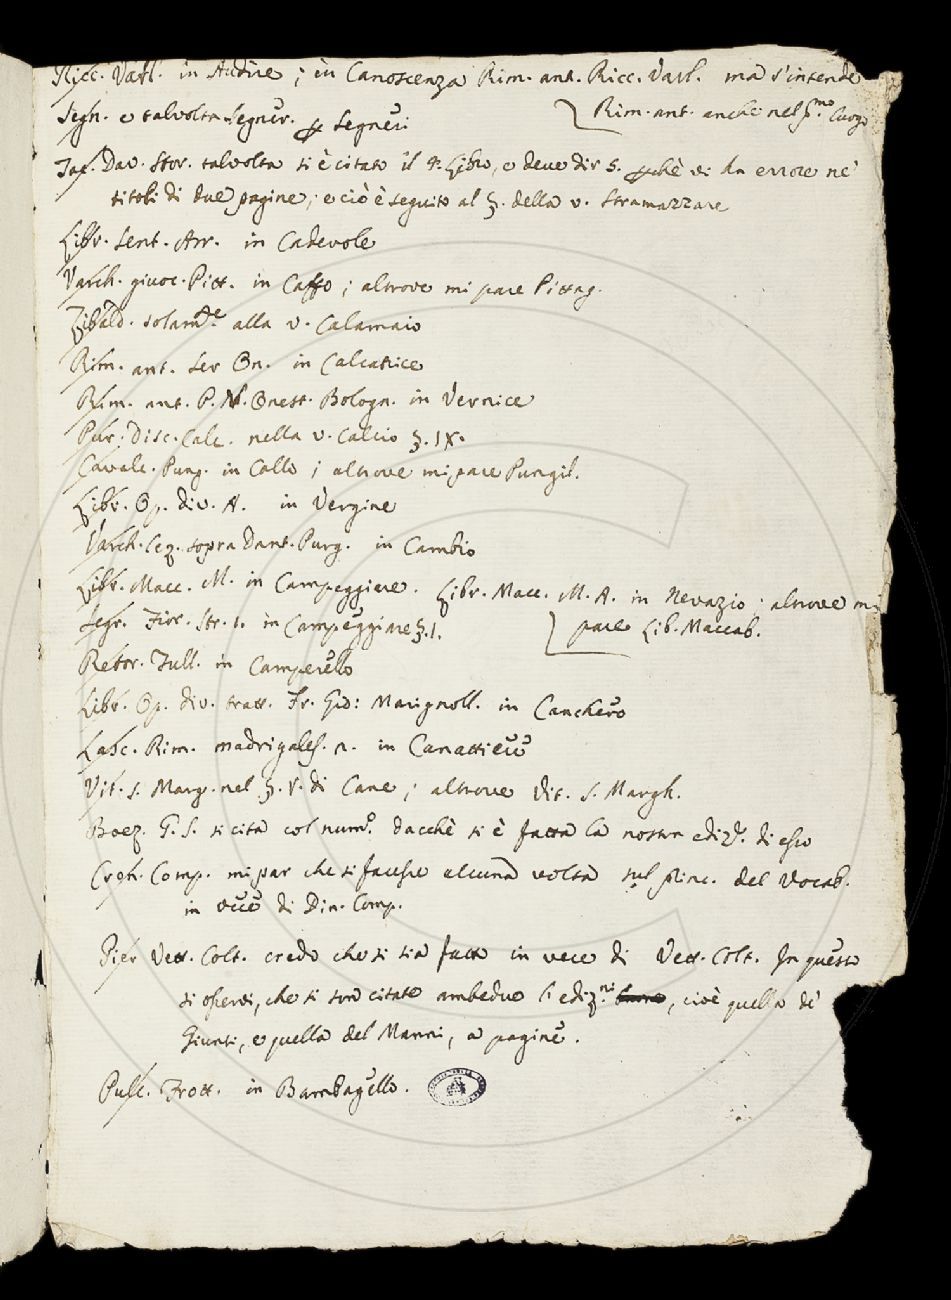 Ricc. Varl. in Andire ; in Canoscenza Rim. ant. Ricc. Varl. ma s'intende
Segn. e talvolta Segner. per Segneri
Rim. ant. anche nel pmo. luogo
Tac. Dav. Stor. talvolta si è citato il 4. Libro, e deve dir 5. perchè vi ha errore ne'
titoli di due pagine; e ciò è seguito al §. della v. Stramazzare
Libr. Sent. Arr. in Cadevole
Varch. giuoc. Pitt. in Caffo ; altrove mi pare Pittag.
Zibald. solamte. alla v. Calamaio
Rim. ant. Ser On. in Calcatrice
Rim. ant. P. N. Onest. Bologn. in Vernice
Pur. Disc. Calc. nella v. Calcio §. IX.
Cavalc. Pung. in Collo ; altrove mi pare Pungil.
Libr. Op. div. A. in Vergine
Varch. Lez. sopra Dant. Purg. in Cambio
Libr. Macc. M. in Campeggiare. Libr. Macc. M. A. in Nevazio ; altrove mi
pare Lib. Maccab.
Segr. Fior. Str. 1. in Campeggiare §. I.
Retor. Tull. in Camperello
Libr. Op. div. tratt. Fr. Gio: Marignoll. in Canchero
Lasc. Rim. madrigales. n. in Canattiere
Vit. S. Marg. nel §. V. di Cane ; altrove Vit. S. Margh.
Boez. G. S. si cita col numo. dacchè si è fatta la nostra edize. di esso
Cron. Comp. mi par che si facesse alcuna volta sul princ. del Vocab.
in vece di Din. Comp.
Pier Vett. Colt. credo che si sia fatto in vece di Vett. Colt. In questo
si osservi, che si son citate ambedue l'edizni. , cioè quella de'
Giunti, e quella del Manni, a pagine.
Pulc. Frott. in Bambagello.